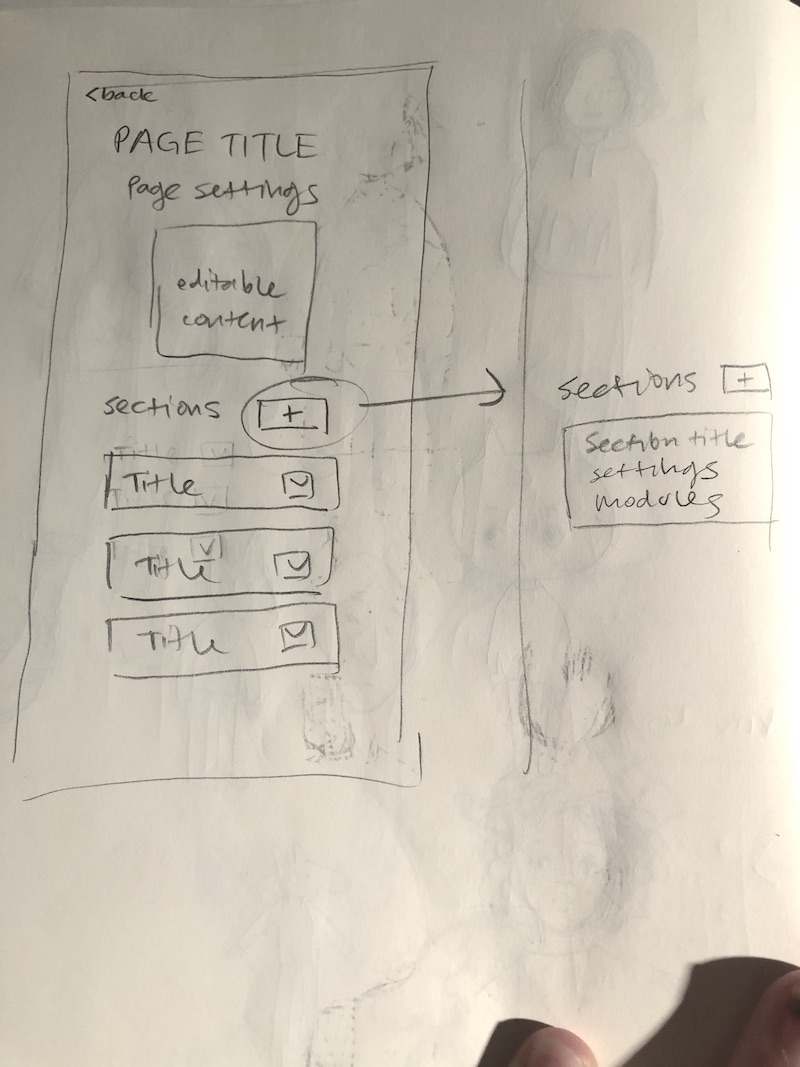 <back
PAGE TITLE
Page settings
editable
content
sections +
Title
Title
Title
sections +
Section title
settings
modules